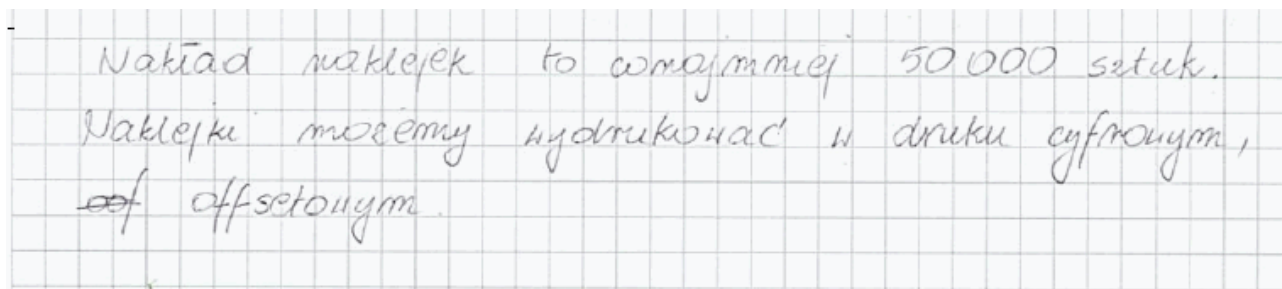 Nakład naklejek to conajmniej 50 000 sztuk.
Naklejki możemy wydrukować w druku cyfrowym,
offsetowym.